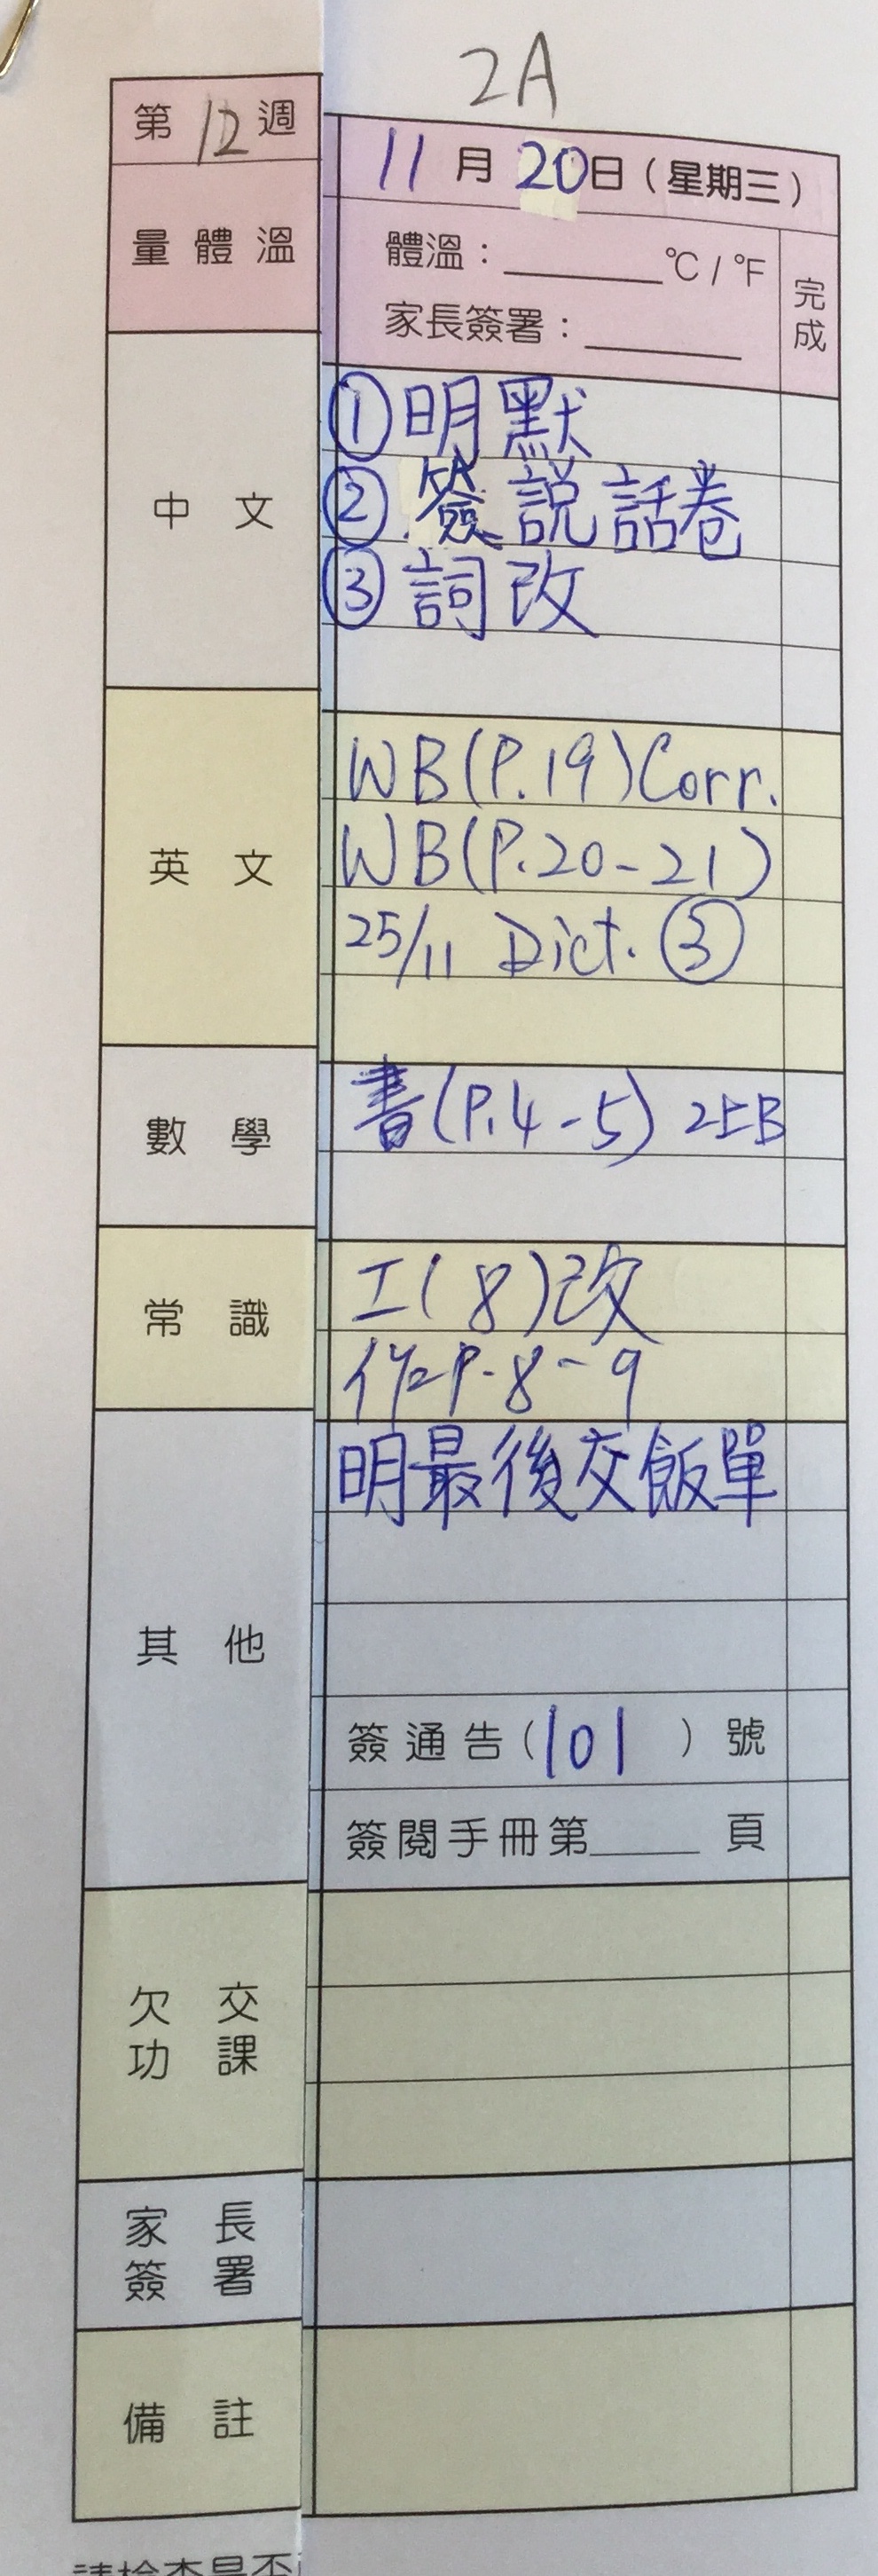 2A
第 12 週
11 月 20 日（星期三）
量體溫
體溫：______℃ / ℉
家長簽署：______
完成
中文
①明默
②簽說話卷
③詞改
英文
WB(P.19)Corr.
WB(P.20-21)
25/11 Dict. ③
數學
書(P.4-5) 2上B
常識
工(8)改
作P.8-9
其他
明最後交飯單
簽通告(101)號
簽閱手冊第____頁
欠交功課
家長簽署
備註